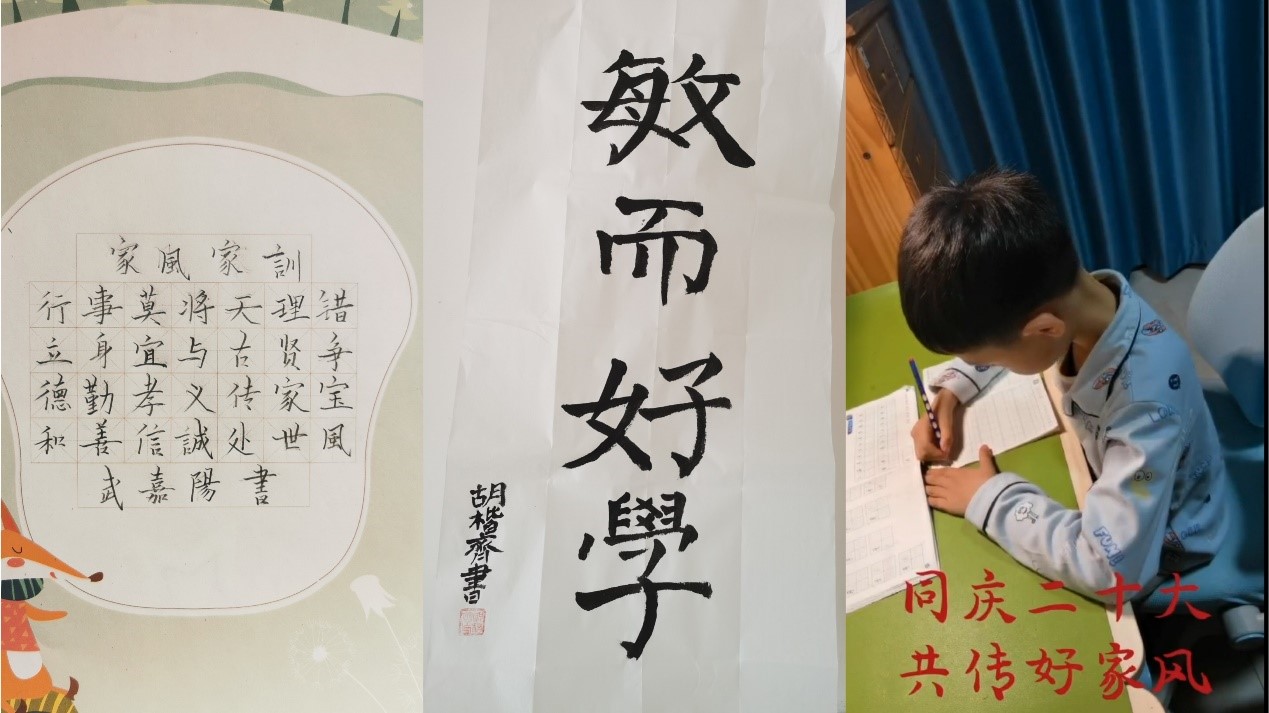 家風家訓
行事莫将天理错
立身宜与古贤争
德勤孝义传家宝
和善信誠处世風
武嘉陽書
敏而好學
胡楷齊書
同庆二十大
共传好家风